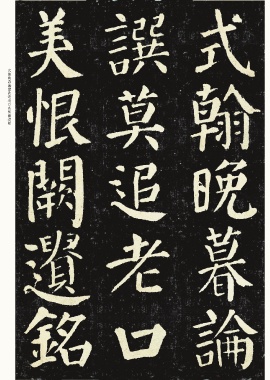 式翰晚暮論
譔莫追老口
美恨闕遺銘